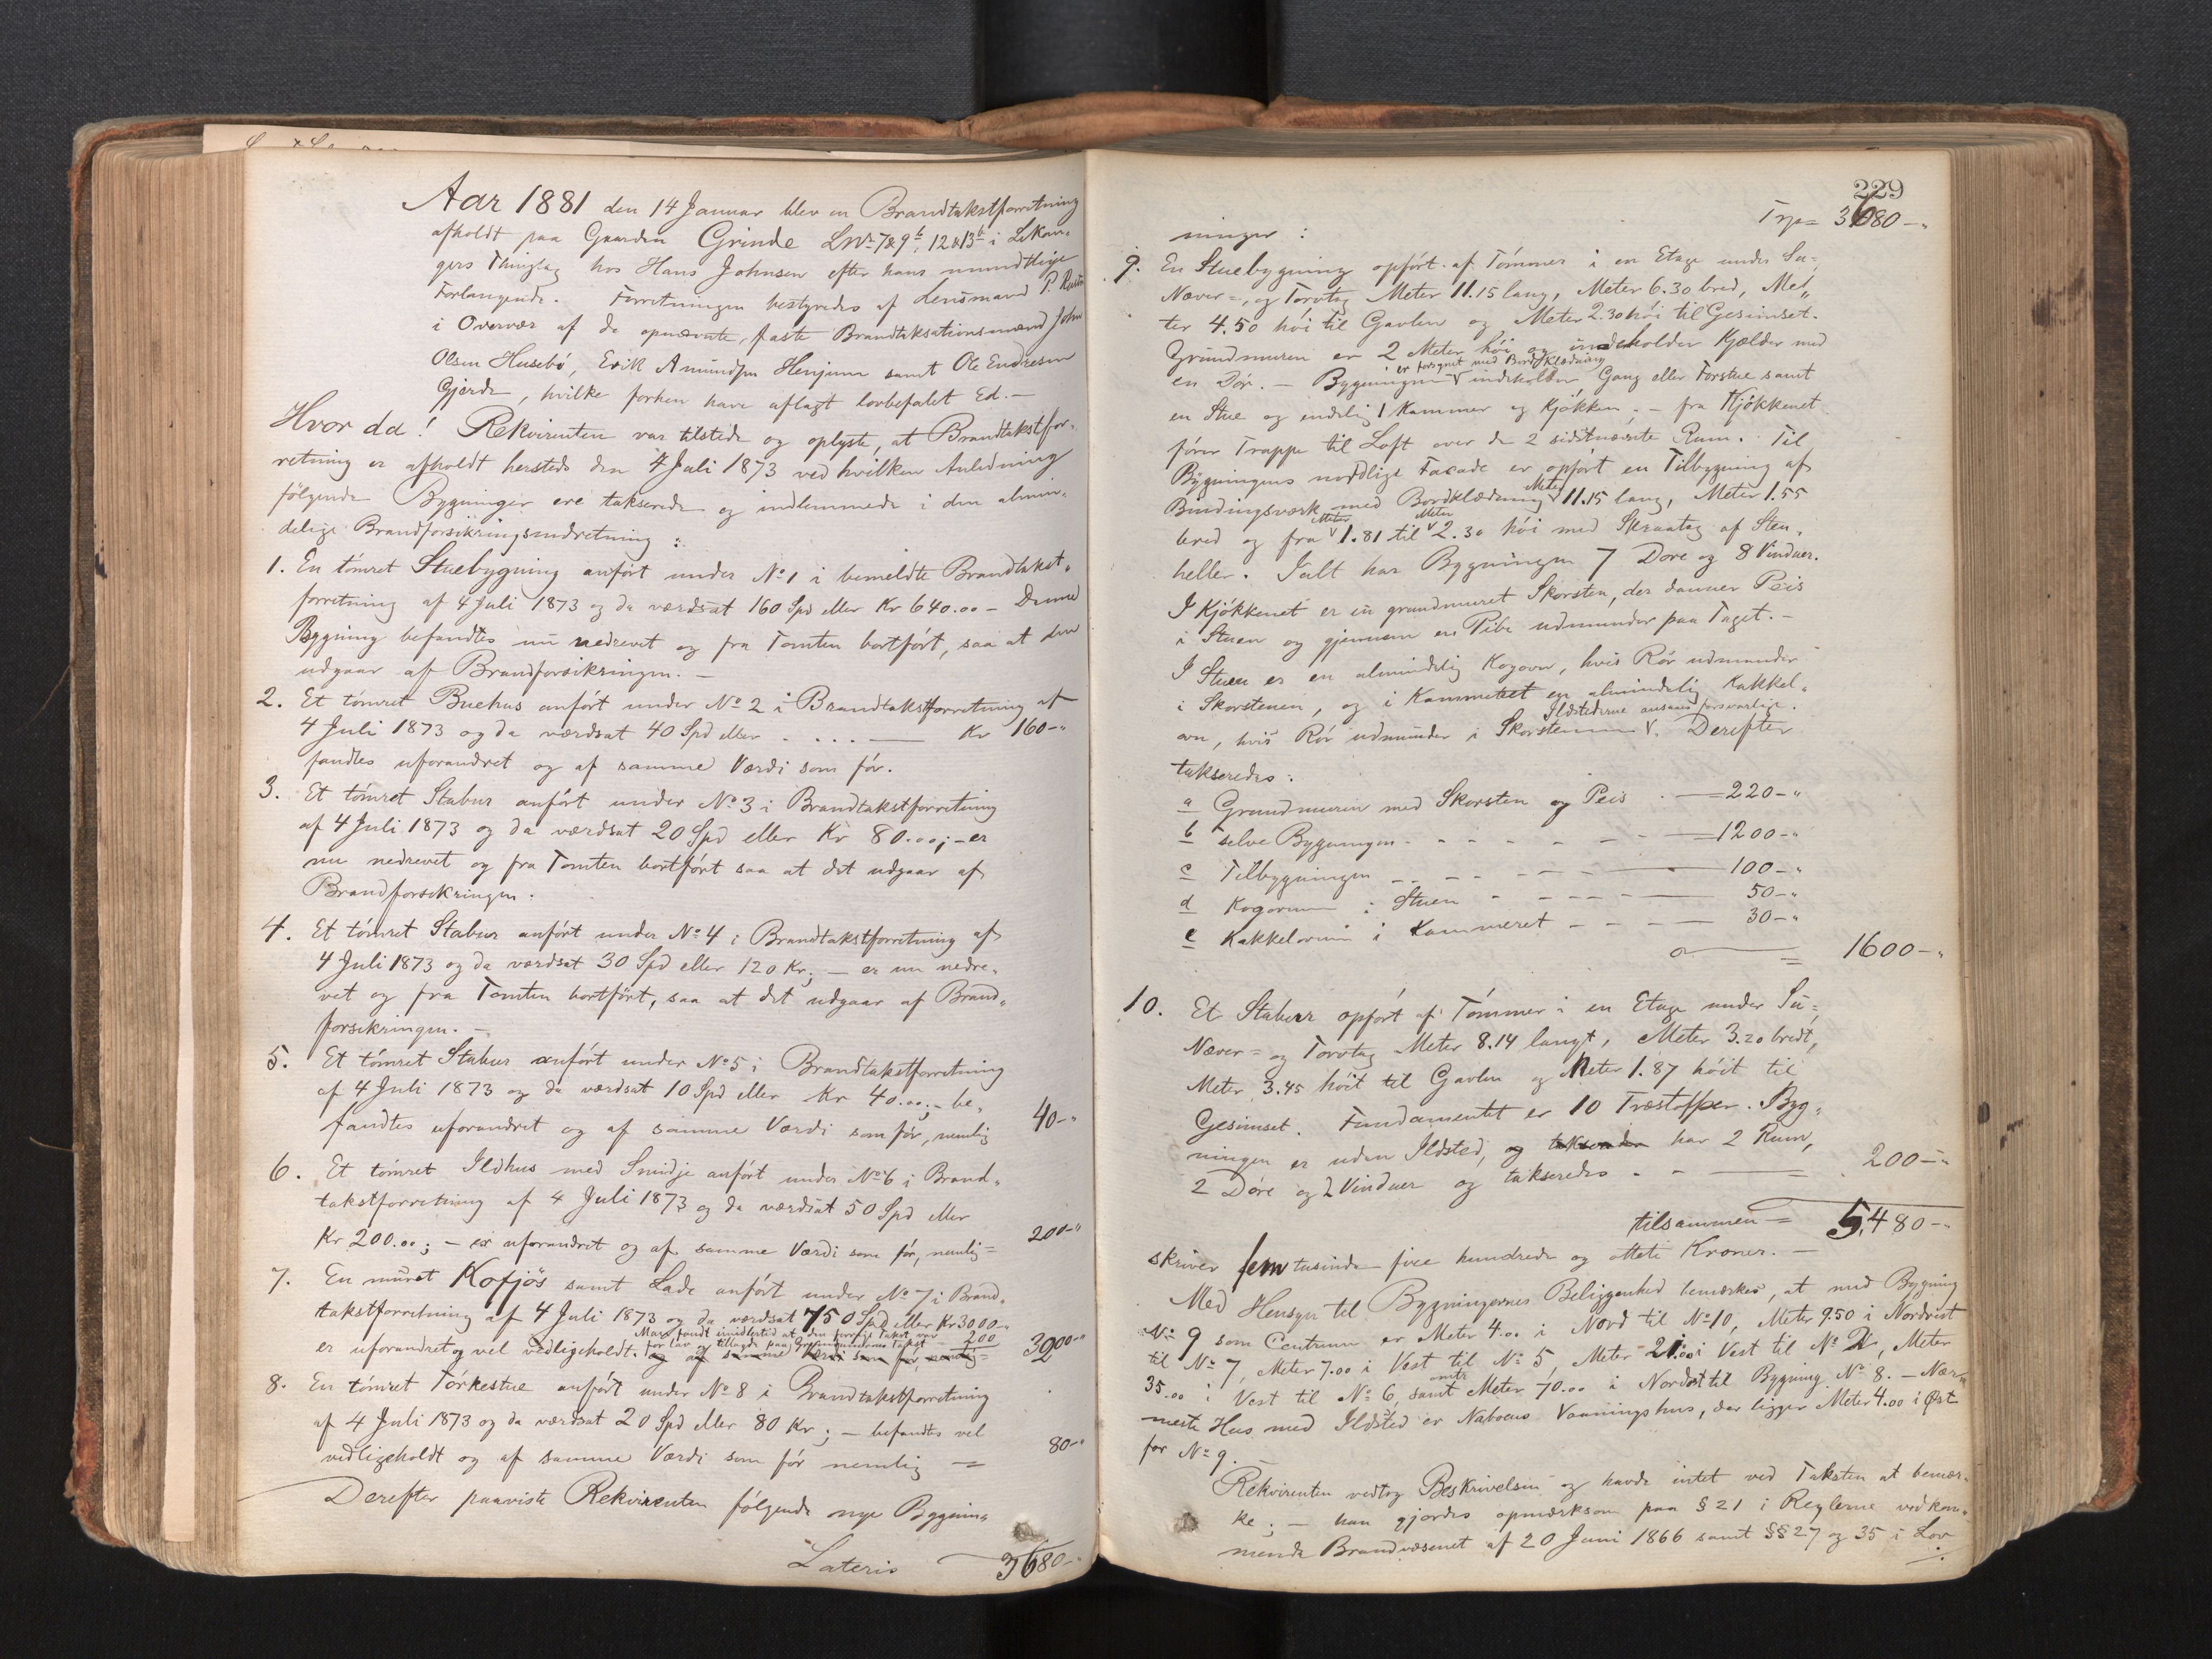 Aar 1881 den 14 Januar blev en Brandtakstforretning
afholdt paa Gaarden Grinde LNr 7 & 9b, 12 & 13b i Lekan-
gers Thinglag hos Hans Johnsen efter hans mundtlige
Forlangende. Forretningen bestyredes af Lensmand P.
i Overvær af de opnævnte, faste Brandtaksationsmænd John
Olsen Husebö, Erik Amundsen Henjum samt Ole Endresen
Gjerde, hvilke forhen have aflagt lovbefalet Ed. -
Hvor da! Rekvirenten var tilstede og oplyste, at Brandtakstfor-
retning er afholdt hersteds den 4 Juli 1873 ved hvilken Anledning
fölgende Bygninger ere takserede og indlemmede i den almin-
delige Brandforsikringsindretning :
1. En tömret Stuebygning anfört under No 1 i bemeldte Brandtakst-
forretning af 4 Juli 1873 og da værdsat 160 Spd eller Kr 640.00 - Denne
Bygning befandtes nu nedrevet og fra Tomten bortfört, saa at den
udgaar af Brandforsikringen. -
2. Et tömret Buehus anfört under No 2 i Brandtakstforretning af
4 Juli 1873 og da værdsat 40 Spd eller . . . . — Kr 160-"
fandtes uforandret og af samme Værdi som för.
3. Et tömret Stabur anfört under No 3 i Brandtakstforretning
af 4 Juli 1873 og da værdsat 20 Spd eller Kr 80.00; - er
nu nedrevet og fra Tomten bortfört saa at det udgaar af
Brandforsikringen.
4. Et tömret Stabur anfört under No 4 i Brandtakstforretning af
4 Juli 1873 og da værdsat 30 Spd eller 120 Kr; - er nu nedre-
vet og fra Tomten bortfört, saa at det udgaar af Brand-
forsikringen. -
5. Et tömret Stabur anfört under No 5 i Brandtakstforretning
af 4 Juli 1873 og da værdsat 10 Spd eller Kr 40.00; - be-
fandtes uforandret og af samme Værdi som för, nemlig 40-"
6. Et tömret Ildhus med Smidje anfört under No 6 i Brand-
takstforretning af 4 Juli 1873 og da værdsat 50 Spd eller
Kr 200.00; - er uforandret og af samme Værdi som för, nemlig = 200-"
7. En muret Kofjös samt Lade anfört under No 7 i Brand-
takstforretning af 4 Juli 1873 og da værdsat 750 Spd eller Kr 3000-"
Man fandt imidlertid at den forrige Takst var
for lav tillagde paa Grundmurens Takst 200
er uforandret og vel vedligeholdt. og af samme Værdi som för, nemlig = 3200-"
8. En tömret Törkestue anfört under No 8 i Brandtakstforretning
af 4 Juli 1873 og da værdsat 20 Spd eller 80 Kr; - befandtes vel
vedligeholdt og af samme Værdi som för nemlig = 80-"
Derefter paaviste Rekvirenten fölgende nye Bygnin-
Lateris 3680-"
229
Trp = 3680-"
ninger :
9. En Stuebygning opfört af Tömmer i en Etage under Su-,
Næver-, og Torvtag Meter 11.15 lang, Meter 6.30 bred, Me-
ter 4.50 höi til Gavlen og Meter 2.30 höi til Gesimset.
Grundmuren er 2 Meter höi og indeholder Kjælder med
er forsynet med Bordklædning
en Dör. - Bygningen V indeholder Gang eller Forstue samt
en Stue og endelig 1 Kammer og Kjökken. - fra Kjökkenet
förer Trappe til Loft over de 2 sidstnævnte Rum. Til
Bygningens nordlige Facade er opfört en Tilbygning af
Bindingsværk med Bordklædning V Meter 11.15 lang, Meter 1.55
bred og fra V Meter 1.81 til V Meter 2.30 höi med Skraatag af Sten-
heller. Ialt har Bygningen 7 Döre og 8 Vinduer.
I Kjökkenet er en grundmuret Skorsten, der danner Peis
i Stuen og gjennem en Pibe udmunder paa Taget. -
I Stuen er en almindelig Kogovn, hvis Rör udmunder
i Skorstenen, og i Kammeret en almindelig Kakkel-
Ildstederne ansaaes forsvarlige.
ovn, hvis Rör udmunder i Skorstenen V. Derefter
takseredes :
a Grundmuren med Skorsten og Peis . — 220-"
b selve Bygningen - - - - - - — 1200-"
c Tilbygningen - - - - - - — 100-"
d Kogovnen i Stuen - - - - — 50-"
e Kakkelovnen i Kammeret - - - — 30-"
= 1600-"
10. Et Stabur opfört af Tömmer i en Etage under Su-,
Næver- og Torvtag Meter 8.14 langt, Meter 3.20 bredt,
Meter 3.45 höit til Gavlen og Meter 1.87 höit til
Gesimset. Fundamentet er 10 Træstolper. Byg-
ningen er uden Ildsted, og takseredes har 2 Rum,
2 Döre og 2 Vinduer og takseredes - - — = 200-"
tilsammen = 5,480-"
skriver fem tusinde fire hundrede og otteti Kroner. -
Med Hensyn til Bygningernes Beliggenhed bemærkes, at med Bygning
No 9 som Centrum er Meter 4.00 i Nord til No 10, Meter 9.50 i Nordvest
til No 7, Meter 7.00 i Vest til No 5, Meter 21.00 i Vest til No 2, Meter
35.00 i Vest til No 6, samt omtr Meter 70.00 i Nordost til Bygning No 8. - Nær-
meste Hus med Ildsted er Naboens Vaaningshus, der ligger Meter 4.00 i Öst
for No 9.
Rekvirenten vedtog Beskrivelsen og havde intet ved Taksten at bemær-
ke; - han gjordes opmærksom paa § 21 i Reglerne vedkom-
mende Brandvæsenet af 20 Juni 1866 samt §§ 27 og 35 i Lov